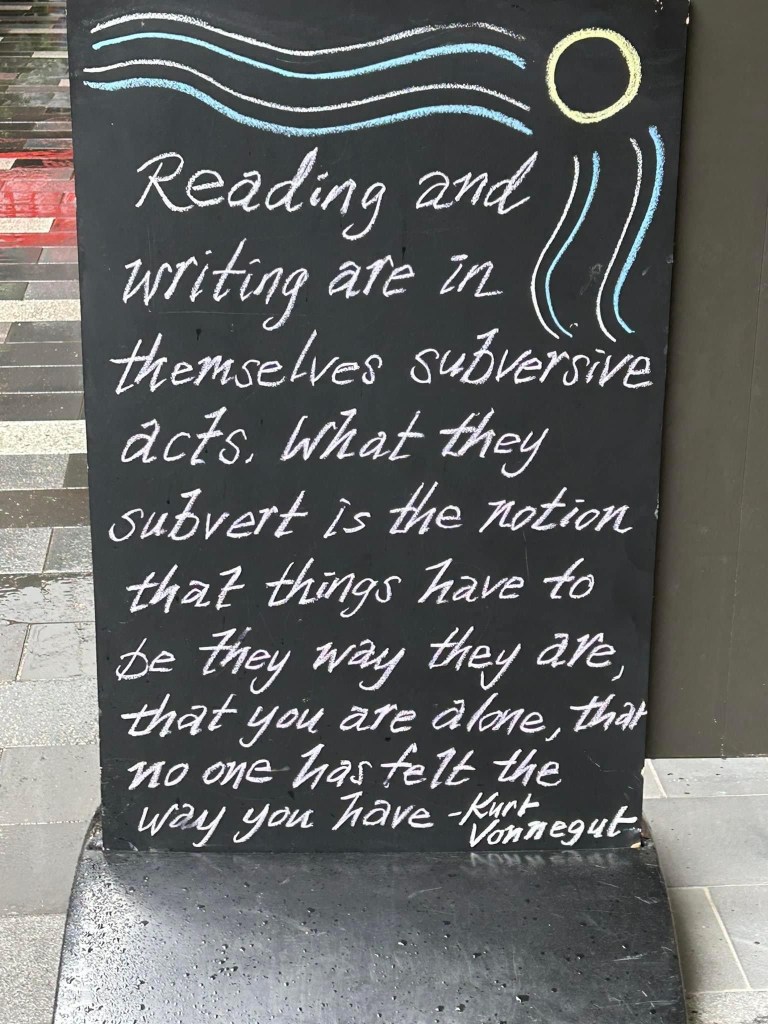 Reading and
writing are in
themselves subversive
acts. What they
subvert is the notion
that things have to
be they way they are,
that you are alone, that
no one has felt the
way you have - Kurt
Vonnegut